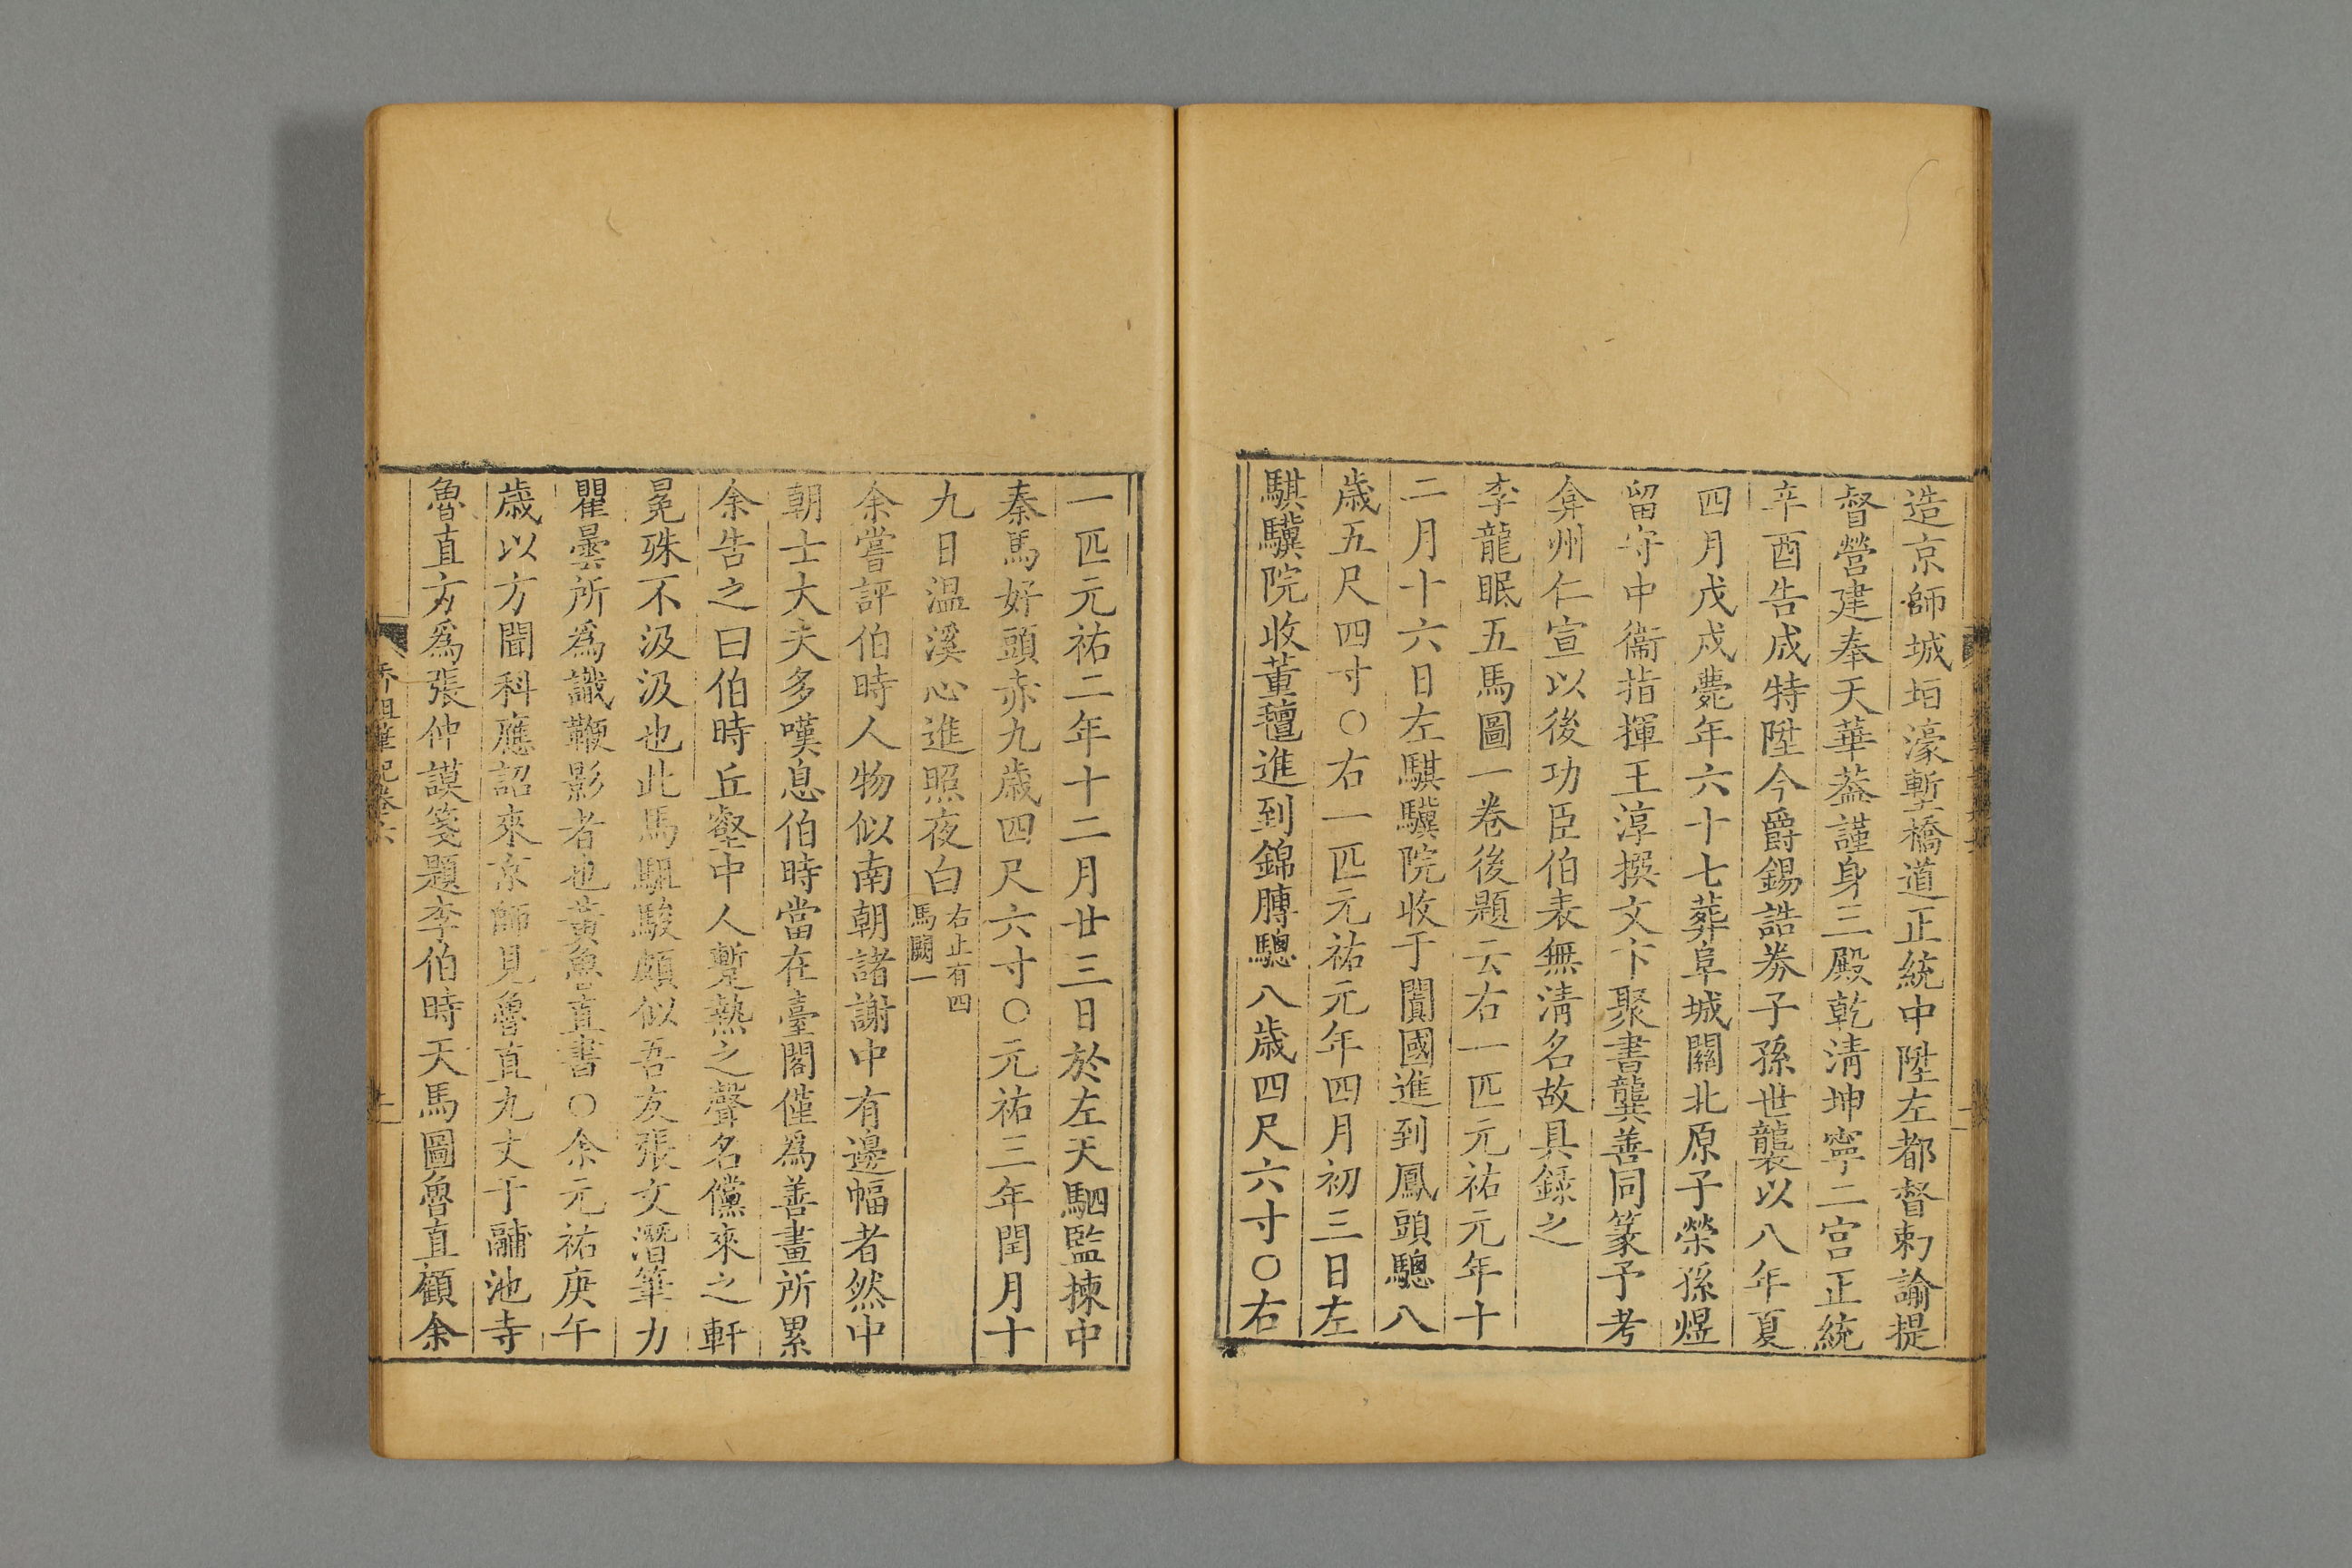 造京師城垣濠塹橋道正統中陞左都督勑諭提
督營建奉天華蓋謹身三殿乾淸坤寧二宫正統
辛酉告成特陞今爵錫誥券子孫世襲以八年夏
四月戊戌薨年六十七葬阜城關北原子榮孫煜
留守中衞指揮王淳撰文卞聚書龔善同篆予考
弇州仁宣以後功臣伯表無淸名故具錄之
李龍眠五馬圖一卷後題云右一匹元祐元年十
二月十六日左騏驥院收于闐國進到鳳頭驄八
歲五尺四寸○右一匹元祐元年四月初三日左
騏驥院收董氊進到錦膊驄八歲四尺六寸○右
一匹元祐二年十二月廿三日於左天駟監揀中
秦馬好頭赤九歲四尺六寸○元祐三年閏月十
九日温溪心進照夜白
右止有四
馬闕一
余嘗評伯時人物似南朝諸謝中有邊幅者然中
朝士大夫多嘆息伯時當在臺閣僅爲善畫所累
余告之曰伯時丘壑中人蹔熱之聲名儻來之軒
冕殊不汲汲也此馬駔駿頗似吾友張文潛筆力
瞿曇所爲識鞭影者也黃魯直書○余元祐庚午
歲以方聞科應詔來京師見魯直九丈于酺池寺
魯直方爲張仲謨箋題李伯時天馬圖魯直顧余